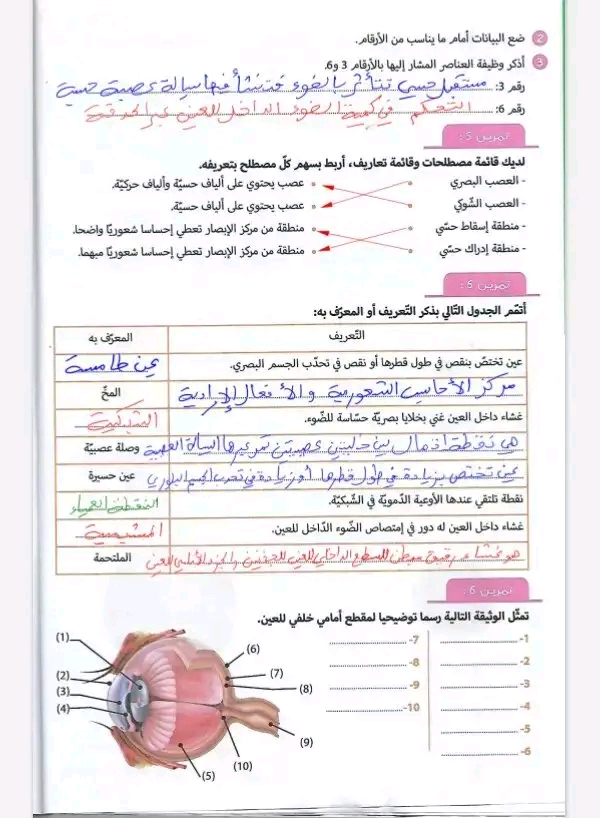 2 ضع البيانات أمام ما يناسب من الأرقام.
3 أذكر وظيفة العناصر المشار إليها بالأرقام 3 و6.
رقم 3: مستقبل حسي تتأثر بالضوء فتنشأ فيها سيالة عصبية حسية
رقم 6: التحكم في كمية الضوء الداخل للعين عبر الحدقة
تمرين 5:
لديك قائمة مصطلحات وقائمة تعاريف، أربط بسهم كلّ مصطلح بتعريفه.
- العصب البصري عصب يحتوي على ألياف حسيّة وألياف حركيّة.
- العصب الشّوكي عصب يحتوي على ألياف حسيّة.
- منطقة إسقاط حسّي منطقة من مركز الإبصار تعطي إحساسا شعوريّا واضحا.
- منطقة إدراك حسّي منطقة من مركز الإبصار تعطي إحساسا شعوريّا مبهما.
تمرين 6:
أتمّم الجدول التّالي بذكر التّعريف أو المعرّف به:
التّعريف المعرّف به
عين تختصّ بنقص في طول قطرها أو نقص في تحدّب الجسم البصري. عين طامسة
مركز الأحاسيس الشعورية والأفعال الإرادية المخّ
غشاء داخل العين غني بخلايا بصريّة حسّاسة للضّوء. الشبكية
هي نقطة اتصال بين خليتين عصبيتين تمر عبرها السيالة العصبية وصلة عصبيّة
عين تختص بزيادة في طول قطرها أو زيادة في تحدب الجسم البلوري عين حسيرة
نقطة تلتقي عندها الأوعية الدّمويّة في الشّبكيّة. النقطة العمياء
غشاء داخل العين له دور في إمتصاص الضّوء الدّاخل للعين. المشيمية
هو غشاء رقيق مبطن للسطح الداخلي للعين للجفنين والجزء الأمامي للعين الملتحمة
تمرين 6:
تمثّل الوثيقة التالية رسما توضيحيا لمقطع أمامي خلفي للعين.
1-
2-
3-
4-
5-
6-
7-
8-
9-
10-
(1)
(2)
(3)
(4)
(5)
(6)
(7)
(8)
(9)
(10)